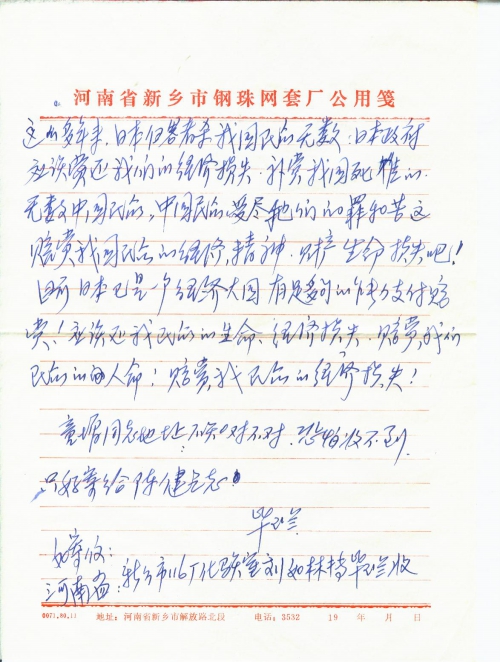 河南省新乡市钢珠网套厂公用笺
这么多年来,日本伤害者杀我国民的无数.日本政府
应该赔还我们的经济损失.补赏我国死难的
无数中国民的,中国民的受尽他们的罪和苦
赔赏我国民的的经济,精神.财产生命损失吧!
目前日本已是一个经济大国有足够的能力支付赔
赏!应该还我民的的生命、经济损失.赔赏我们
民的的人命!赔赏我民的的经济损失!
童增同志地址不知对不对.恐怕收不到
只好寄给陈健同志!
毕玉兰
如寄收:
河南省:新乡市116厂化验室刘如林转毕玉兰收
0071.80.11 地址:河南省新乡市解放路北段 电话:3532 19 年 月 日